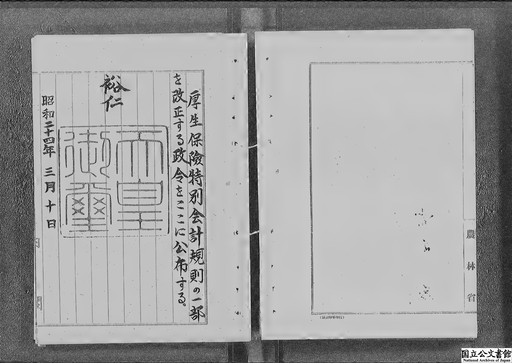 厚生保險特別会計規則の一部
を改正する政令をここに公布する。
裕仁
天皇
御璽
昭和二十四年三月十日
農林省
国立公文書館
National Archives of Japan